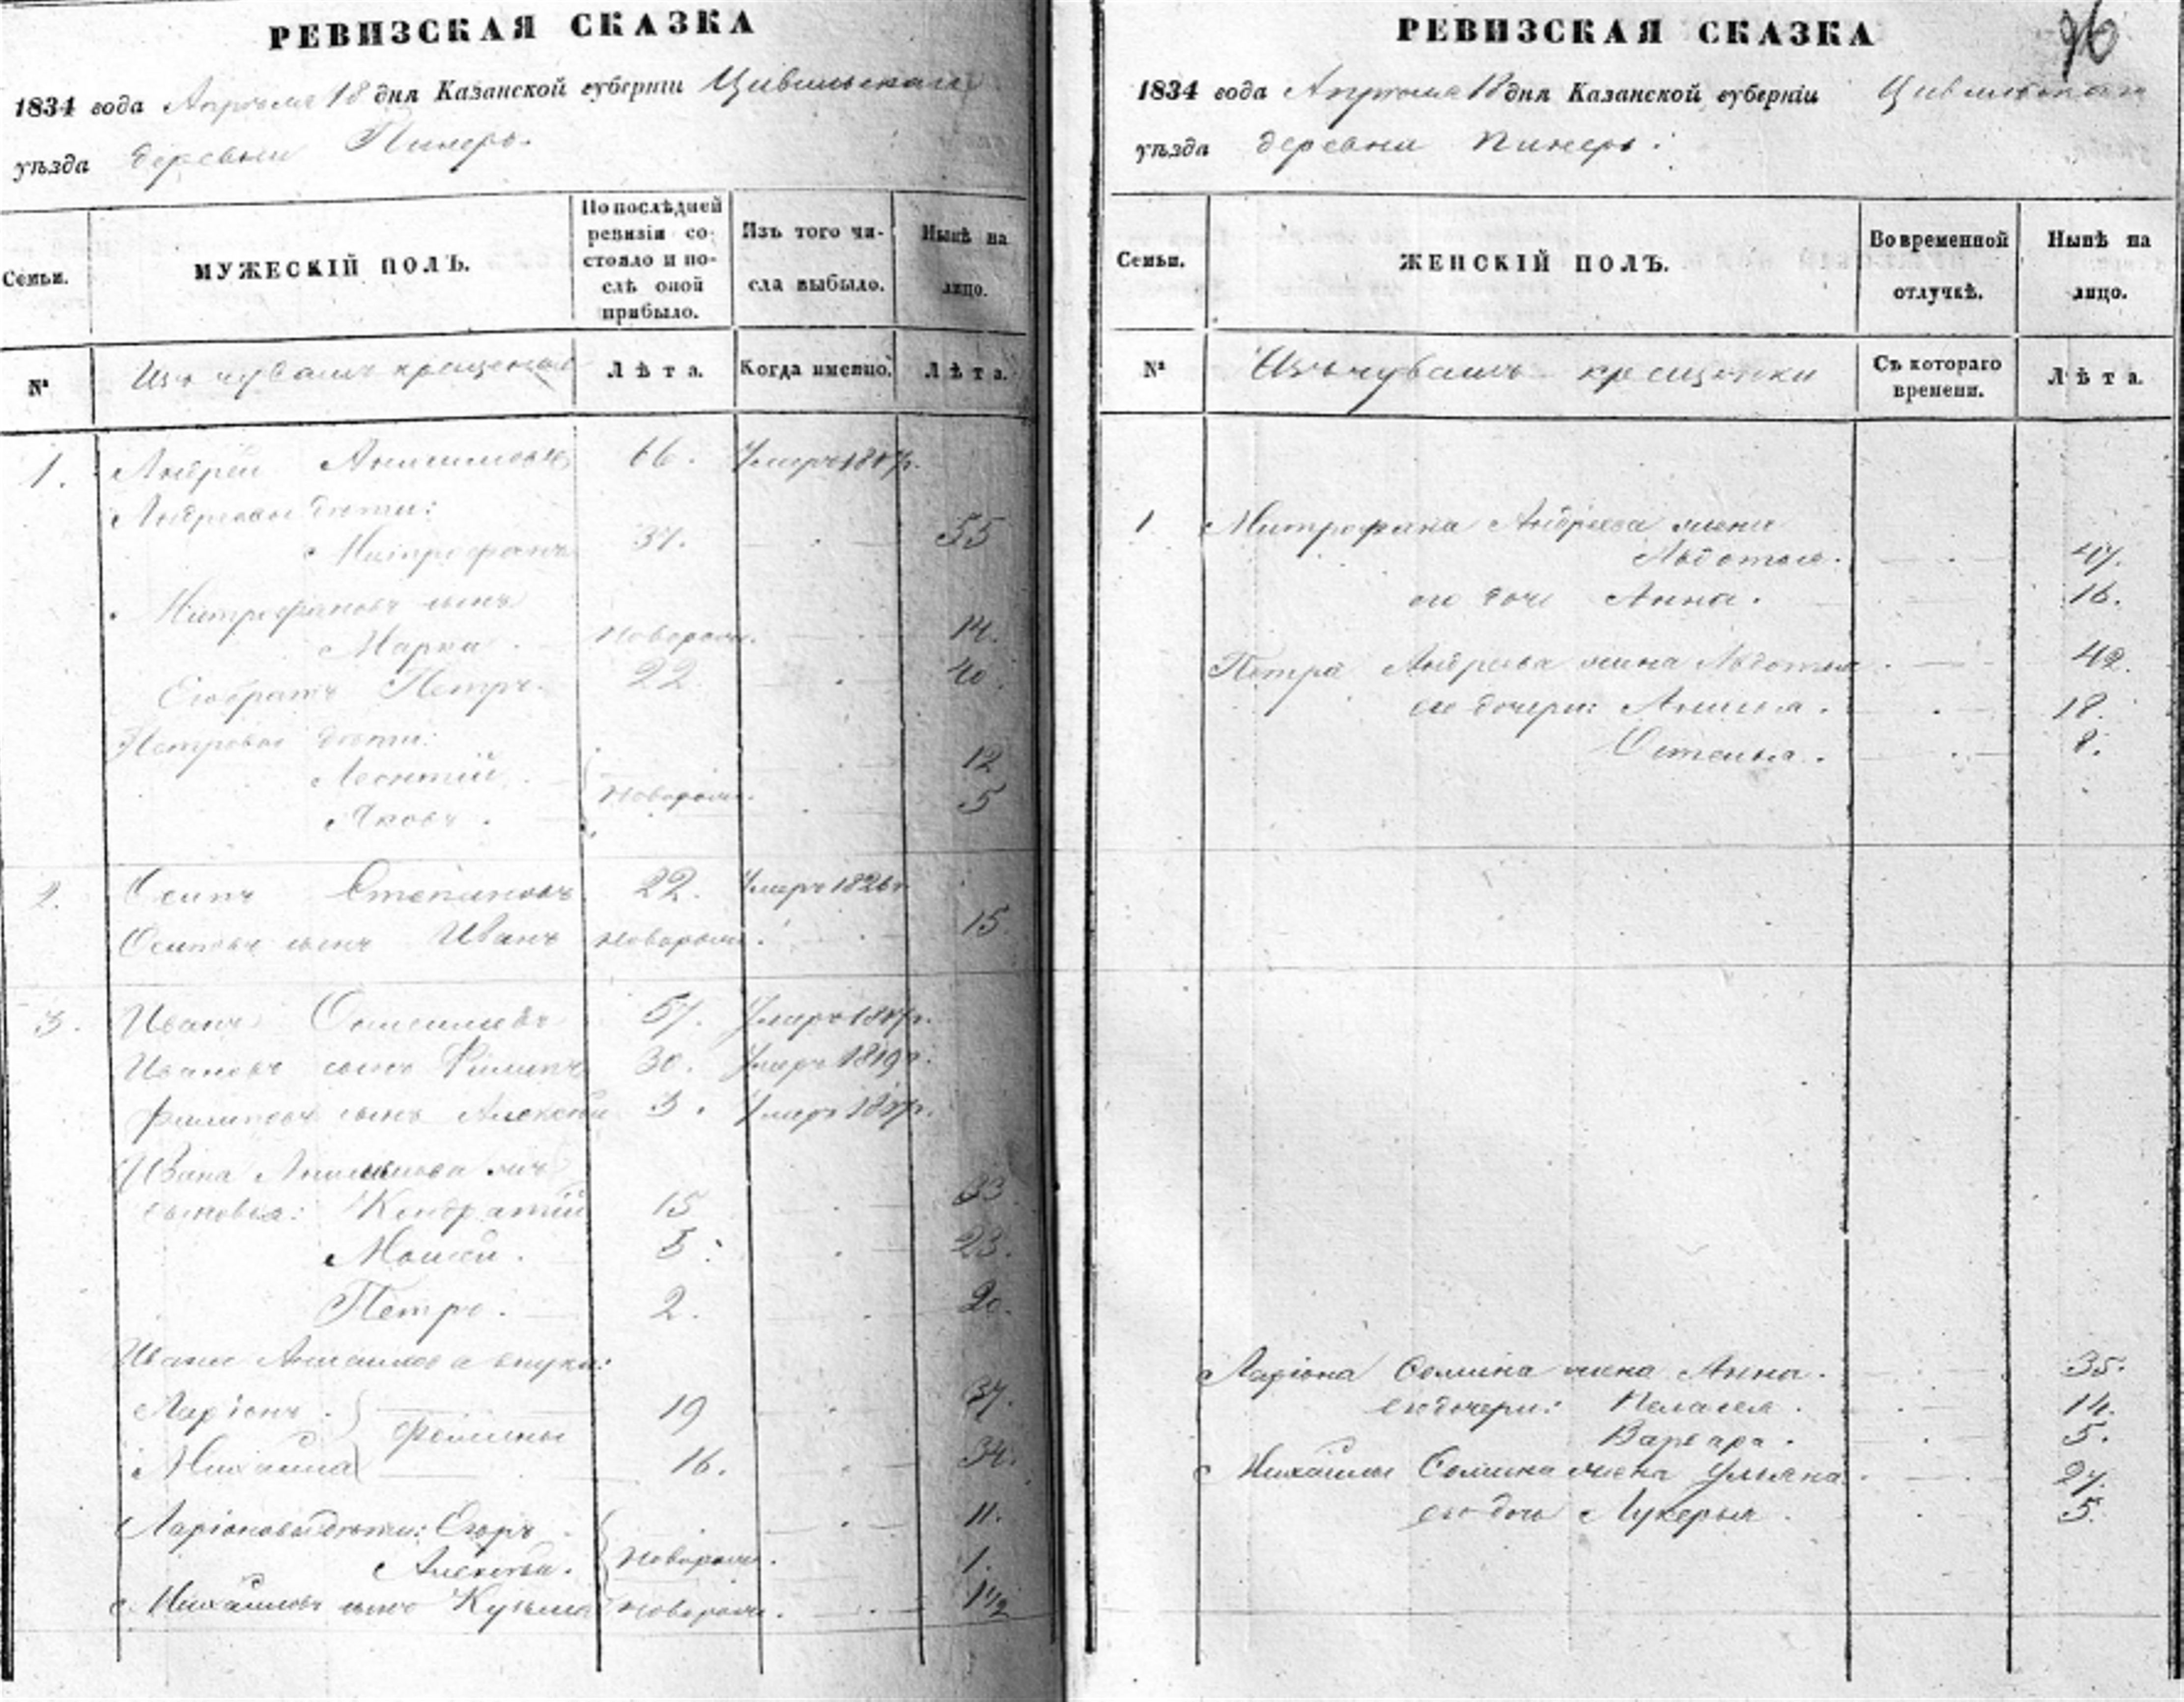 РЕВИЗСКАЯ СКАЗКА
1834 года Апреля 18 дня Казанской губерніи Цивильскаго
уѣзда деревни Пинеръ.
Семьи.
МУЖЕСКІЙ ПОЛЪ.
По послѣдней ревизіи состояло и послѣ оной прибыло.
Изъ того числа выбыло.
Нынѣ на лицо.
№
Изъ чувашъ крещеные
Лѣта.
Когда именно.
Лѣта.
1. Андрей 66. Умеръ
Андреевы дѣти:
Митрофанъ 37. 55
Митрофановъ сынъ
Марка. новорож. 14.
Его братъ Петръ. 22 40.
Петровы дѣти:
Леонтій. 12
новорож.
Яковъ. 5
2. Осипъ Степановъ 22. Умеръ 1826г.
Осиповъ сынъ Иванъ новорож. 15.
3. Иванъ 57. Умеръ
Ивановъ сынъ Филипъ 30. Умеръ 1819г.
Филиповъ сынъ Алексѣй 3. Умеръ
Ивана
сыновья: Кондратій 15 33.
Моисей. 5. 23.
Петръ. 2. 20.
Ивана внуки:
Ларіонъ 19 37.
Фомины
Михайла 16. 34.
Ларіоновы дѣти: Егоръ 11.
новорож.
Алексѣй. 1.
Михайловъ сынъ Кузьма новорож. 1 1/2
96
РЕВИЗСКАЯ СКАЗКА
1834 года Апреля 18 дня Казанской губерніи Цивильскаго
уѣзда деревни Пинеръ.
Семьи.
ЖЕНСКІЙ ПОЛЪ.
Во временной отлучкѣ.
Нынѣ на лицо.
№
Изъ чувашъ крещенки
Съ котораго времени.
Лѣта.
1 Митрофана Андреева жена
Авдотья. 47.
его дочь Анна. 16.
Петра Андреева жена Авдотья 42.
его дочери: Анисья. 18.
8.
Ларіона Фомина жена Анна. 35.
его дочери: Пелагея. 14.
Варвара. 5.
Михайлы Фомина жена Ульяна. 27.
его дочь Лукерья. 5.